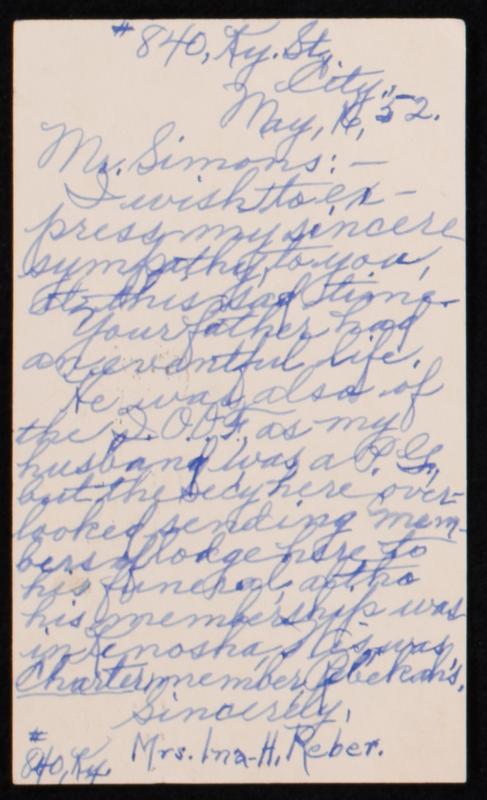 # 840, Ky. St,
City,
May, 16, 52.
Mr. Simons:—
I wish to ex-
press my sincere
sympathy, to you,
at this sad time.
Your father had
an eventful life.
He was also of
the I.O.O.F. as my
husband was a P. G.,
but the Secy here over-
looked sending mem-
bers of lodge here to
his funeral, altho
his membership was
in Kenosha, Wis. was
Charter member Rebekah's.
Sincerely,
Mrs. Ina-H, Reber.
# 840, Ky.